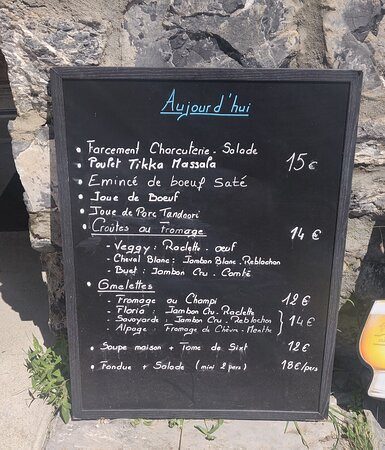 Aujourd'hui
• Farcement Charcuterie - Salade
• Poulet Tikka Massala 15€
• Emincé de boeuf Saté
• Joue de Boeuf
• Joue de Porc Tandoori
• Croûtes au fromage 14 €
- Veggy : Raclette - oeuf
- Cheval Blanc : Jambon Blanc - Reblochon
- Buet : Jambon Cru - Comté
• Omelettes
- Fromage ou Champi 12 €
- Floria : Jambon Cru - Raclette
- Savoyarde : Jambon Cru - Reblochon 14 €
- Alpage : Fromage de Chèvre - Menthe
• Soupe maison + Tome de Sixt 12 €
• Fondue + Salade (mini 2 pers) 18€/pers